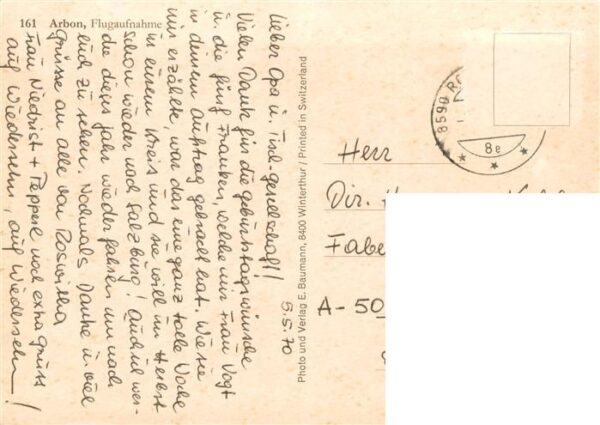 161 Arbon, Flugaufnahme
Photo und Verlag E. Baumann, 8400 Winterthur / Printed in Switzerland
5.5.70
Lieber Opa u. Tirol-gesellschaft!
Vielen Dank für die Geburtstagswünsche
u. die fünf Franken, welche mir Frau Vogt
in deinem Auftrag gebracht hat. Wie sie
mir erzählte, war das eine ganz tolle Woche
in eurem Kreis und sie will im Herbst
schon wieder nach Salzburg! Auch ich wer-
de dieses Jahr wieder fahren um nach
euch zu sehen. Nochmals Danke u. viel
Grüsse an alle von Roswitha
Frau Niedrist + Pepperl noch extra Gruss
auf Wiedersehn, auf Wiedersehn!
8590
8e
Herr
Dir.
Fabe
A-50